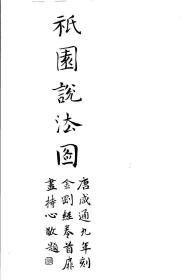 祇園說法圖
唐咸通九年刻
金剛經卷首扉
畫持心敬題